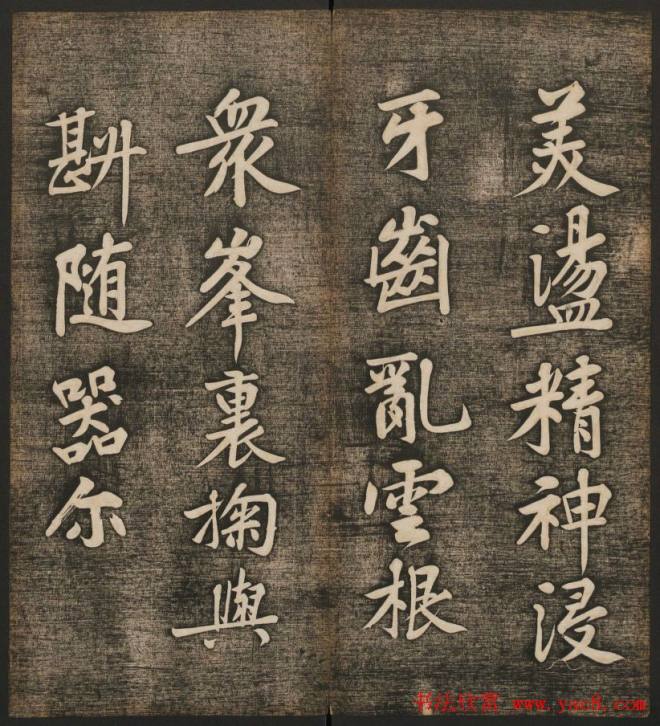 美盪精神浸
牙齒亂雲根
衆峯裏掬與
斟随器尓
书法欣赏 www.yac8.com